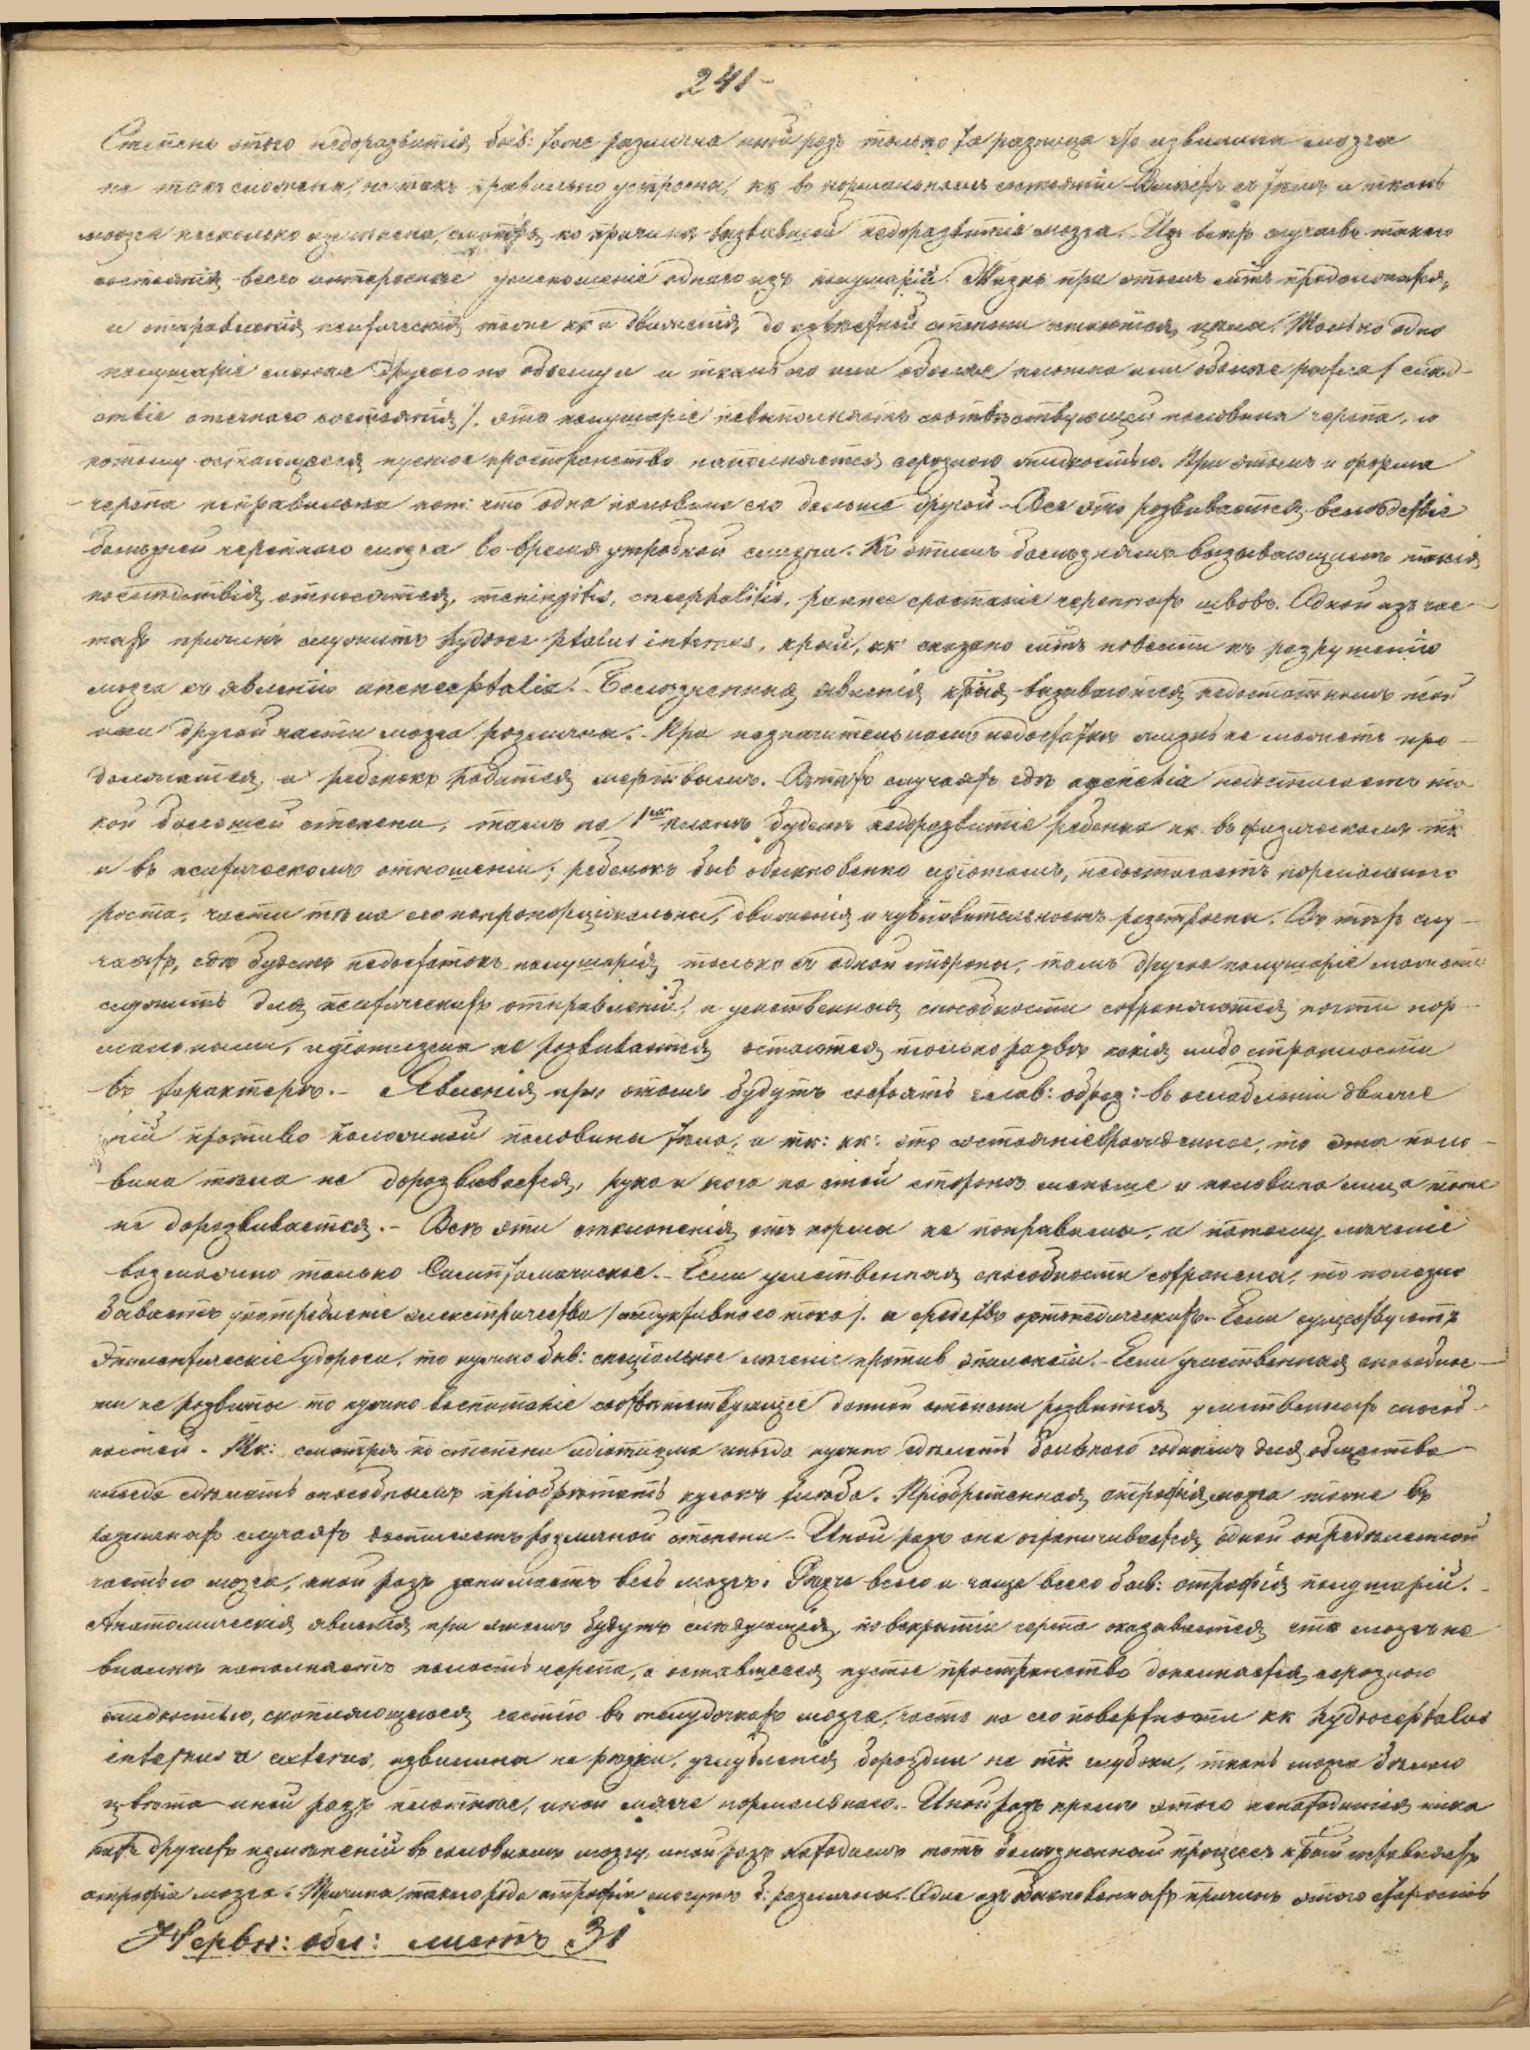 241-
Степень этого недоразвитія быв: тоже различна иной разъ только та разница что извилины мозга
не такъ сложены, не такъ правильно устроены, кк въ нормальномъ состояніи Вмѣстѣ съ тѣмъ и ткань
мозга несколько изменена, смотря по причинѣ вызвавшей недоразвитіе мозга. Изъ всехъ случаевъ такого
состоянія всего интереснѣе уменьшеніе одного изъ полушарій. Жизнь при этомъ можетъ продолжаться,
и отправленія психическія также кк и движенія до извѣстной степени остаются целы. Только одно
полушаріе меньше другого по объему и ткань его или более плотна или более рыхла (слѣд-
ствіе отечнаго состоянія). это полушаріе невыполняетъ соотвѣтствующей половины черепа, и
потому остающееся пустое пространство наполняется серозною жидкостью. При этомъ и форма
черепа неправильна пот: что одна половина его больше другой - Все это развивается вслѣдствіе
болѣзней черепного мозга во время утробной жизни. Къ этимъ болѣзнямъ вызывающимъ такія
послѣдствія относятся, meningitis, encephalitis, раннее сростаніе черепныхъ швовъ. Одной изъ час-
тыхъ причинъ служитъ hydrocephalus internus, крый, кк сказано можетъ повести къ разрушенію
мозга къ явленію anencephalia. - Болѣзненныя явленія крыя вызываются недостаткомъ той
или другой части мозга различны. - При значительномъ недостаткѣ жизнь не можетъ про-
должаться, и ребенокъ родится мертвымъ. - Въ техъ случаяхъ гдѣ agenesia недостигаетъ та
кой большей степени, тамъ на 1ом планѣ будетъ недоразвитіе ребенка кк въ физическомъ тк
и въ психическомъ отношеніи; ребенокъ быв обыкновенно идіотомъ, недостигаетъ нормальнаго
роста, части тѣла его непропорціональны, движенія и чувствительность разстроены. Въ техъ слу-
чаяхъ, гдѣ будетъ недостатокъ полушарія только съ одной стороны, тамъ другое полушаріе можетъ
служить для психическихъ отправленій, и умственныя способности сохраняются почти нор-
мальными, идіотизма не развивается остаются только развѣ какія либо странности
въ характерѣ. - Явленія при этомъ будутъ состоять глав: образ: въ ослабленіи движе
ній противо положной половины тѣла, и тк: кк: это состояніе врожденное, то эта поло-
вина тѣла не доразвивается, рука и нога на этой стороне меньше и половина лица тоже
не доразвивается. - Все эти отклоненія отъ нормы не поправимы, а потому леченіе
возможно только Симптоматическое. - Если умственныя способности сохранены, то полезно
бываетъ употребленіе электричества (индуктивного тока). и средствъ ортопедическихъ. - Если существуютъ
Эпилептическіе удороги, то нужно быв: спеціальное леченіе против эпилепсіи. - Если умственныя способнос-
ти не развиты то нужно воспитаніе соотвѣтствующее данной степени развитія умственныхъ способ-
ностей. - Тк: смотря по степени идіотизма иногда нужно сдѣлать больного годнымъ для общества
иногда сдѣлать способнымъ пріобрѣтать кусокъ хлѣба. Пріобрѣтенная атрофія мозга тоже въ
различныхъ случаяхъ достигаетъ различной степени. - Иной разъ она ограничивается одной опредѣленной
частью мозга, иной разъ занимаетъ весь мозгъ. всего и чаще всего быв: атрофія полушарій.
Анатомическія явленія при этомъ будутъ слѣдующія, по вскрытіи черепа оказывается что мозгъ не
вполнѣ наполняетъ полость черепа, а оставшееся пустое пространство дополняется серозною
жидкостью, скопляющеюся частію въ желудочкахъ мозга, часто на его поверхности кк hydrocephalus
internus и externus, извилины не резки, углубленія бороздки не тк глубоки, ткань мозга бѣлаго
цвѣта иной разъ плотнѣе, иной мягче нормальнаго. - Иной разъ кромѣ этого ненаходится ника
кихъ другихъ измѣненій въ головномъ мозгу, иной разъ находимъ тотъ болѣзненный процессъ крый
атрофіи мозга. Причины такого рода атрофіи могутъ б: различны. Одне изъ обыкновенныхъ причинъ этого старость
Нервн: бол: листъ 31